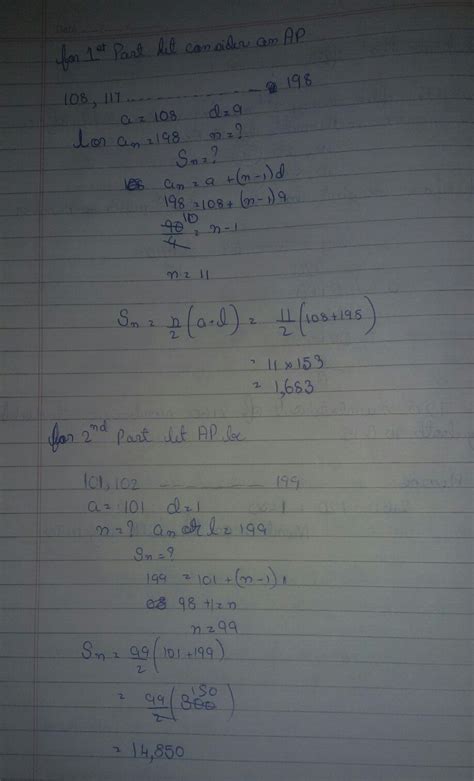 for 1st Part let consider an AP
108, 117 ............ 198
a = 108 d = 9
l or an = 198 n = ?
Sn = ?
an = a + (n-1)d
198 = 108 + (n-1)9
10
90/9 = n-1
n = 11
Sn = n/2 (a+l) = 11/2 (108+198)
= 11 × 153
= 1,683
for 2nd Part let AP be
101, 102 ............ 199
a = 101 d = 1
n = ? an or l = 199
Sn = ?
199 = 101 + (n-1)1
98 + 1 = n
n = 99
Sn = 99/2 (101 + 199)
= 99/2 (300) 150
= 14,850